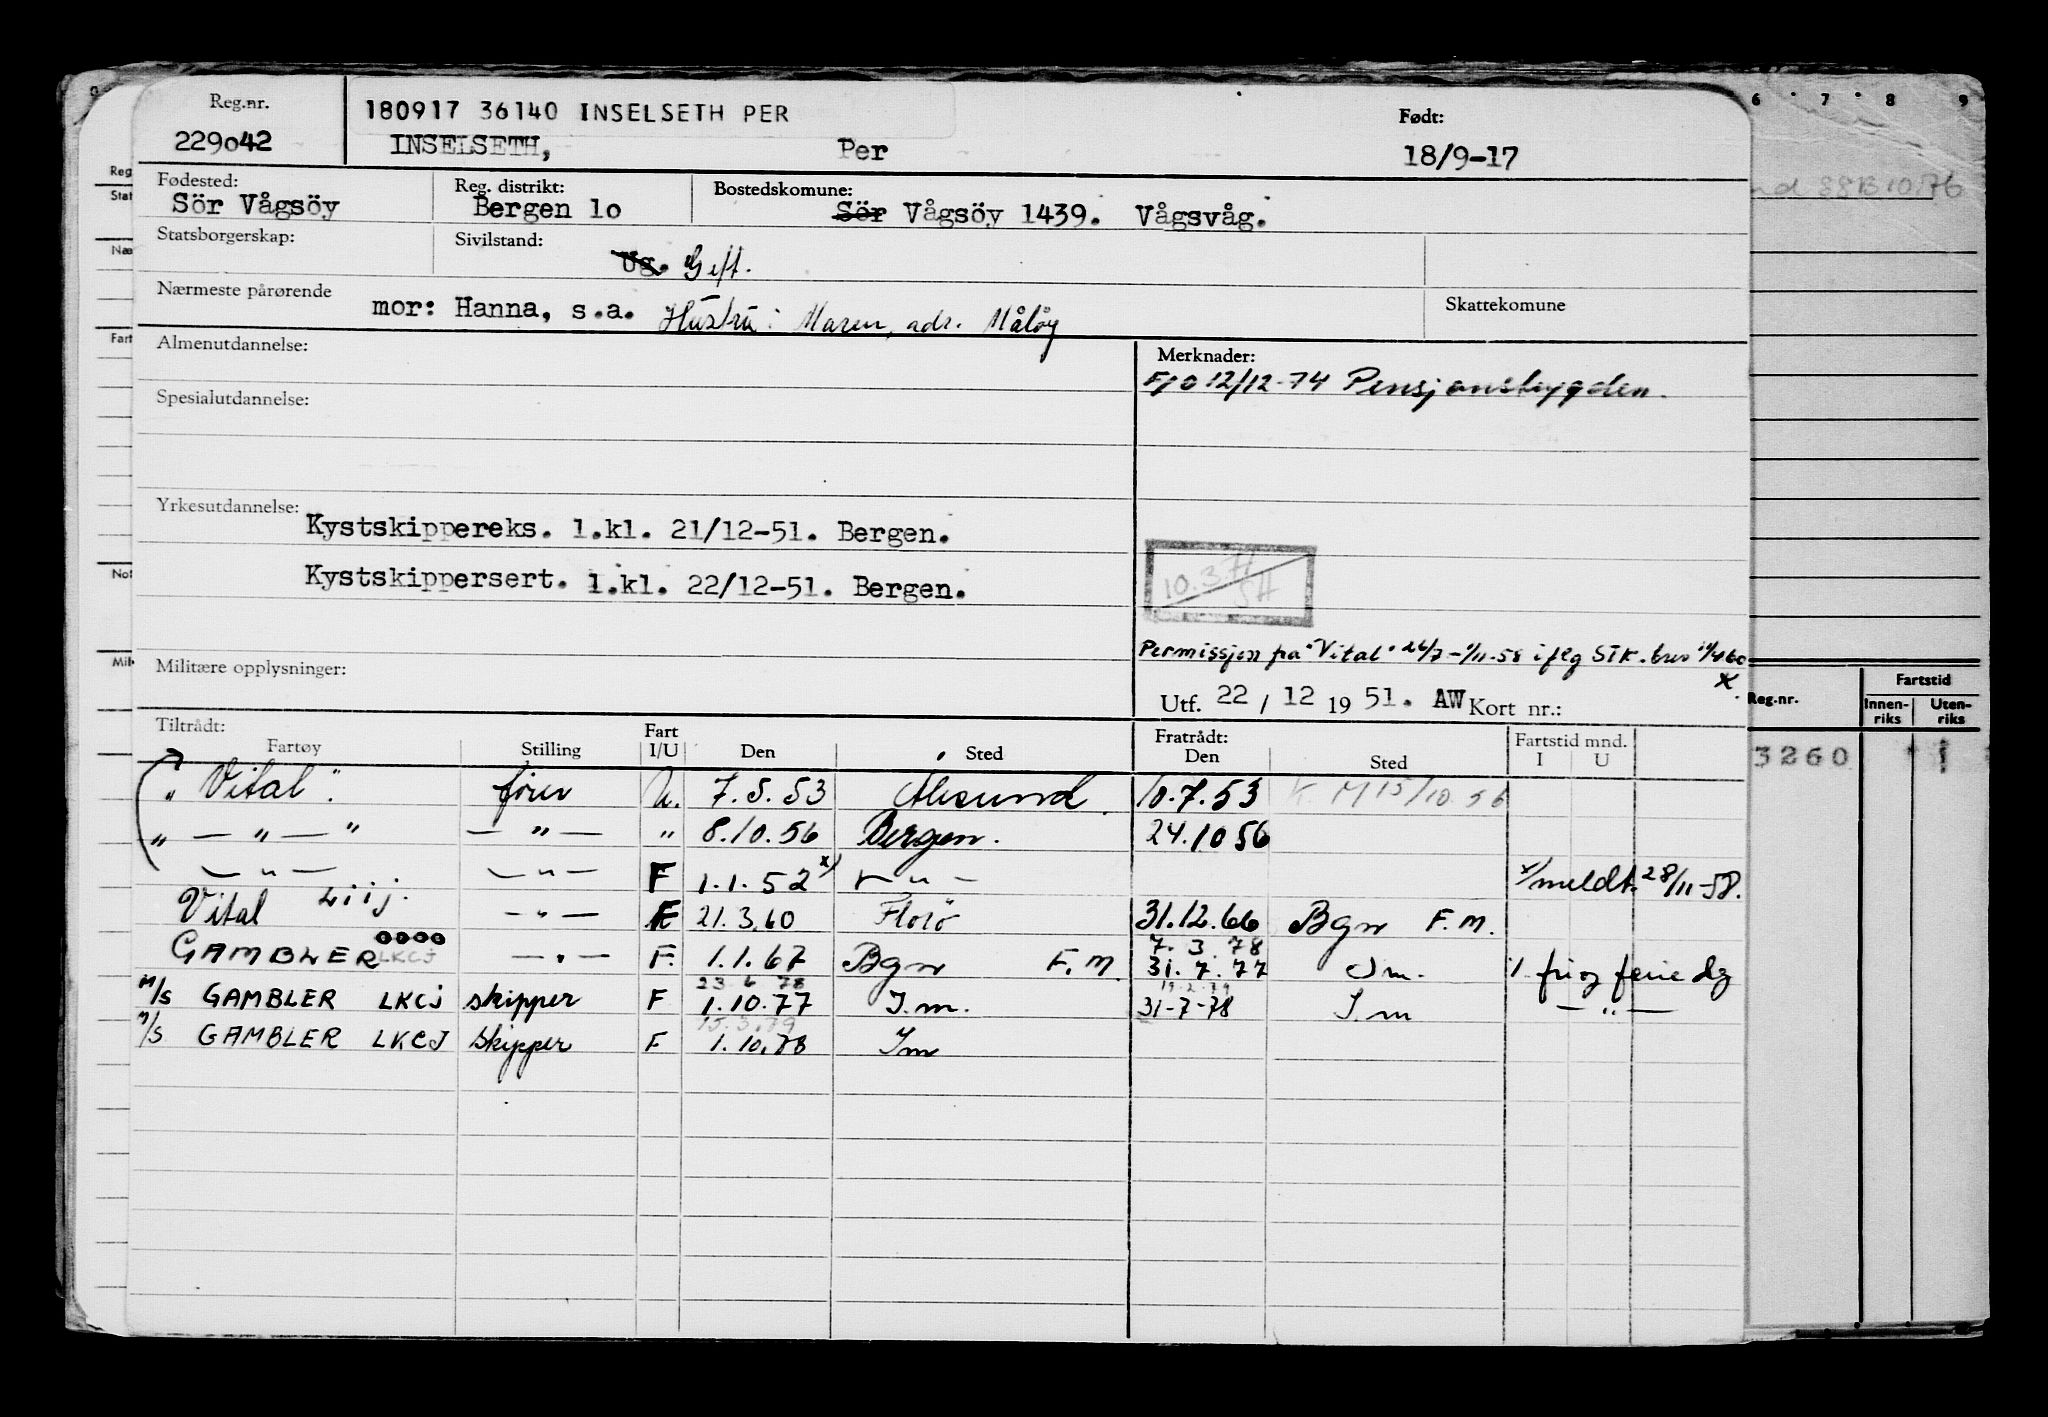 Reg.nr. 180917 36140 INSELSETH PER Født:
229042 INSELSETH, Per 18/9-17
Fødested: Reg. distrikt: Bostedskomune:
Sör Vågsöy Bergen 1o Sör Vågsöy 1439. Vågsvåg.
Statsborgerskap: Sivilstand: Ug. Gift.
Nærmeste pårørende mor: Hanna, s.a. Hustru: Maren, adr. Måløy Skattekomune
Almenutdannelse: Merknader:
12/12-74 Pensjonstrygden.
Spesialutdannelse:
Yrkesutdannelse: Kystskippereks. 1.kl. 21/12-51. Bergen.
Kystskippersert. 1.kl. 22/12-51. Bergen.
Permissjon fra "Vital" 26/7-1/11-58 iflg STK. brev
Militære opplysninger:
Utf. 22 / 12 19 51. AW Kort nr.:
Tiltrådt: Fart Fratrådt: Fartstid mnd.
Fartøy Stilling I/U Den Sted Den Sted I U
"Vital". fører U. 7.5.53 Ålesund. 10.7.53 K.M 15/10.56
" — " — " — " — " 8.10.56 Bergen. 24.10 56
— " — — " — F 1.1.52 x) — " — x/meldt. 28/11-58.
Vital Liij. — " — F 21.3.60 Florø 31.12.66 Bgn F.M.
7. 3. 78
GAMBLER LKCJ — " — F. 1.1.67 Bgn F.M 31.7.77 Im. /. fri og ferie dg
23 6 78 19.2.79
M/S GAMBLER LKCJ skipper F 1.10.77 I.m. 31-7-78 I.m — " —
15.3.79
M/S GAMBLER LKCJ skipper F 1.10.78 Im
6 7 8 9
88B 10.76
Reg.nr. Fartstid
Innen-riks Uten-riks
3260